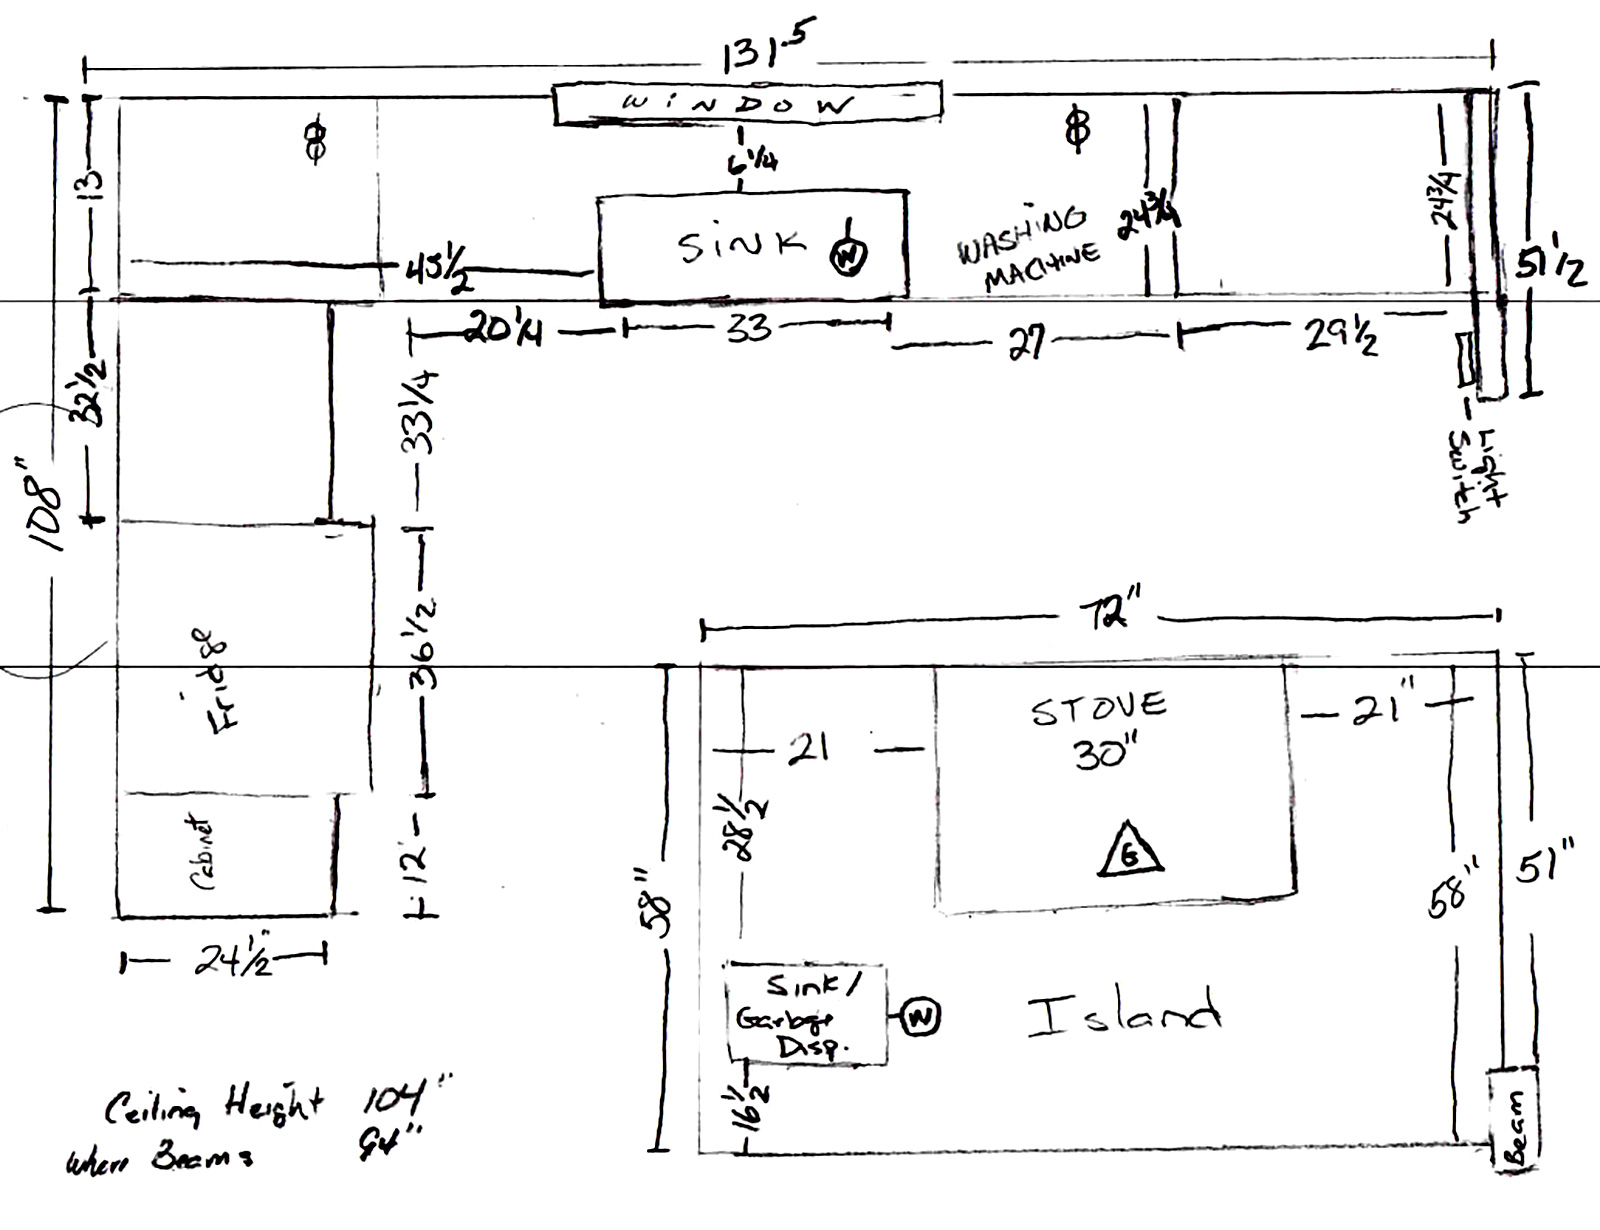 131.5
WINDOW
6 1/4
13
SINK
W
WASHING
MACHINE
24 3/4
24 3/4
45 1/2
51 1/2
20 1/4
33
27
29 1/2
32 1/2
33 1/4
Light
Switch
108"
36 1/2
Fridge
72"
STOVE
30"
21
21"
28 1/2
G
12
Cabinet
58"
58"
51"
24 1/2"
Sink/
Garbage
Disp.
W
Island
16 1/2
Beam
Ceiling Height 104"
When Beams 94"